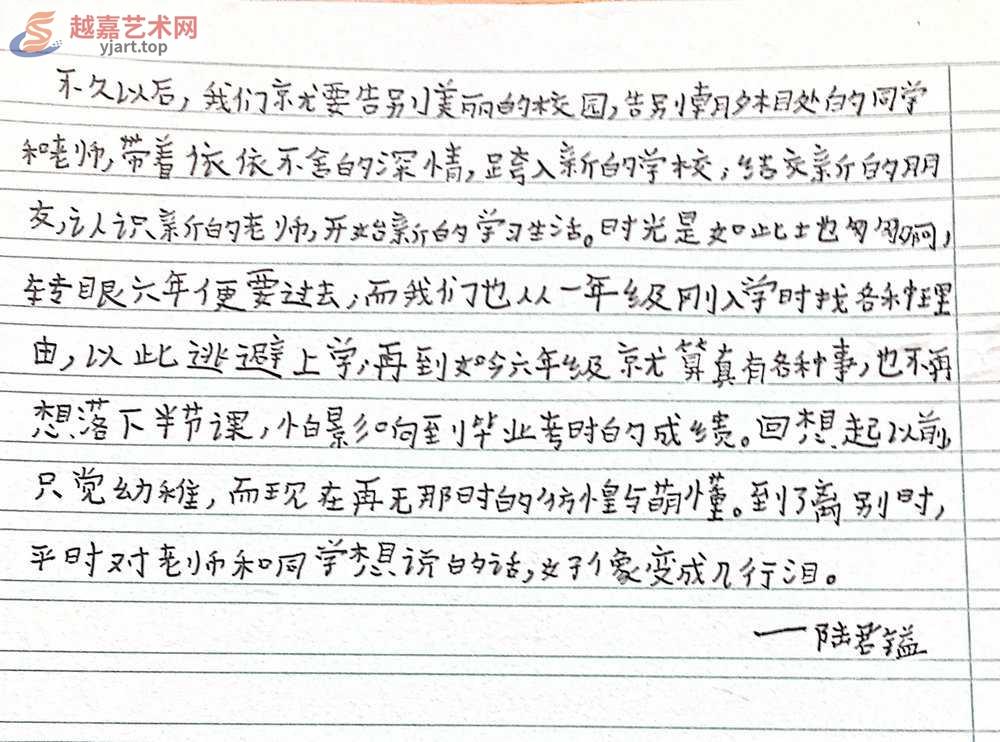 越嘉艺术网
yjart.top
不久以后，我们就要告别美丽的校园，告别朝夕相处的同学
和老师，带着依依不舍的深情，跨入新的学校；结交新的朋
友，认识新的老师，开始新的学习生活。时光是如此地匆匆啊，
转眼六年便要过去，而我们也从一年级刚入学时找各种理
由，以此逃避上学，再到如今六年级就算真有各种事，也不再
想落下半节课，怕影响到毕业考时的成绩。回想起以前，
只觉幼稚，而现在再无那时的彷惶与萌懂。到了离别时，
平时对老师和同学想说的话，好像变成几行泪。
——陆君镒